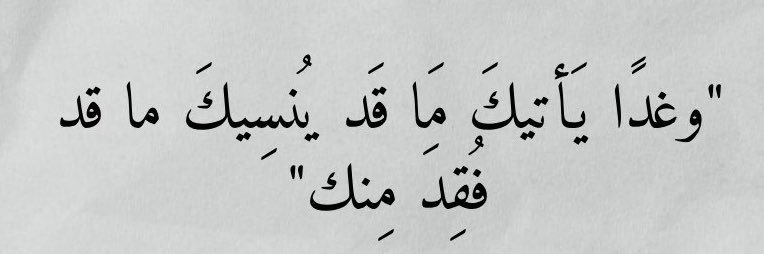 "وغدًا يَأتيكَ مَِا قَد يُنسِيكَ ما قد
فُقِد مِنك"